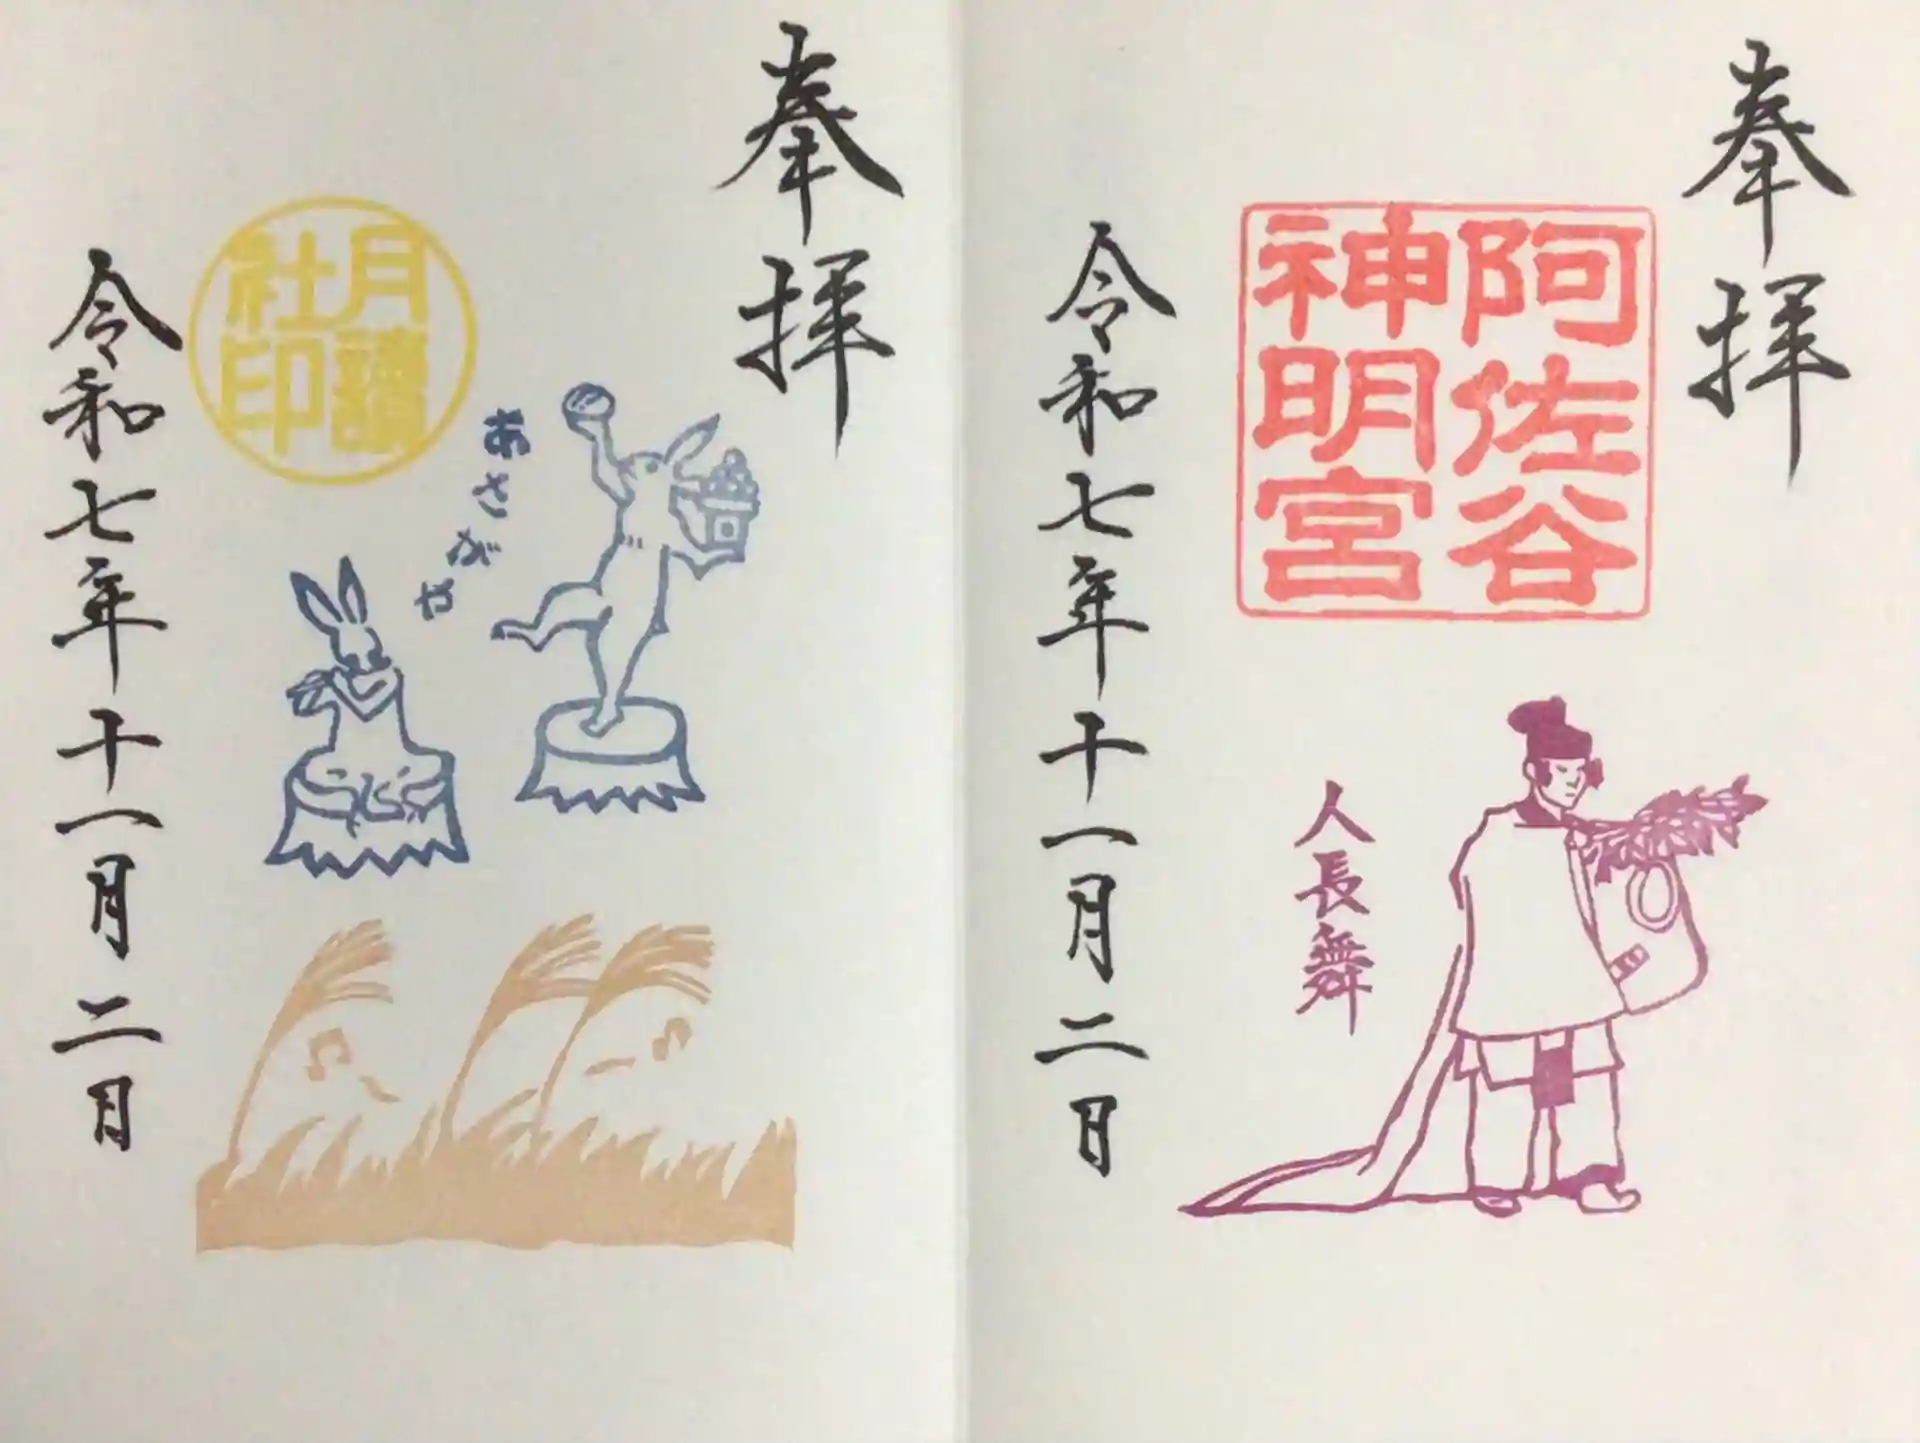 奉拝
阿佐谷
神明宮
人長舞
令和七年十一月二日
奉拝
あさがや
月讀
社印
令和七年十一月二日